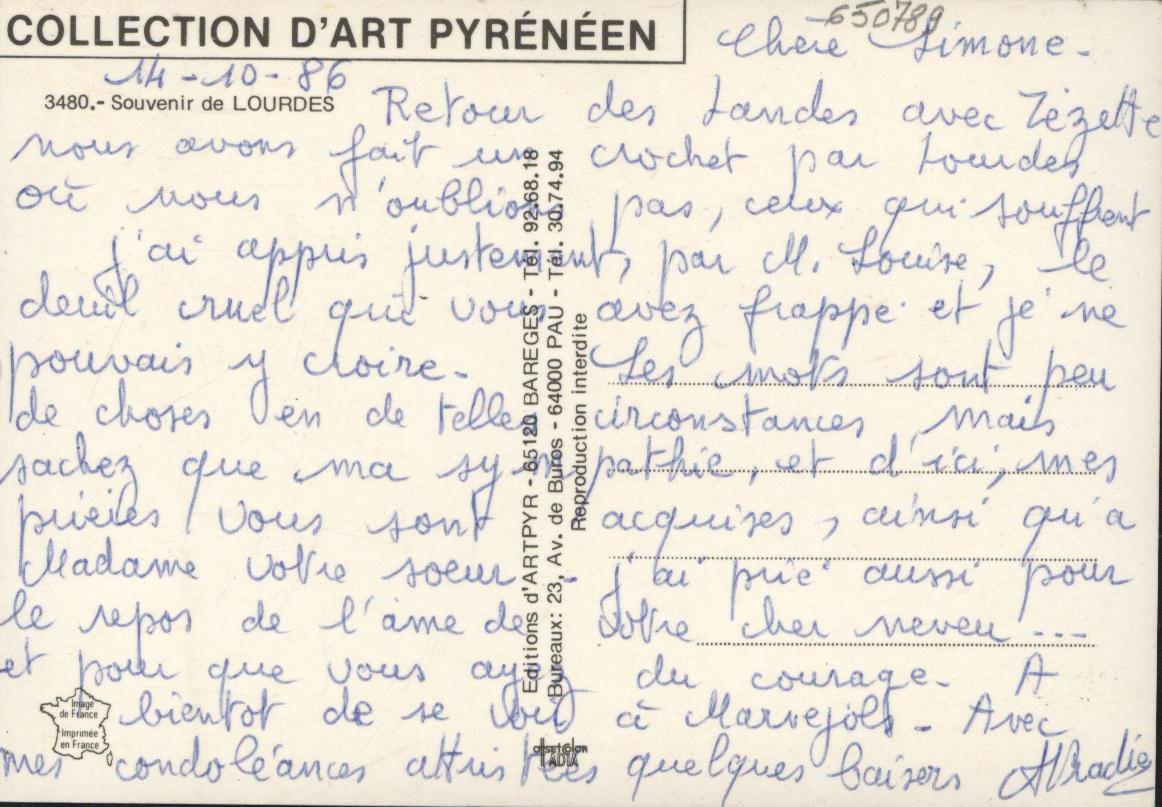 COLLECTION D'ART PYRÉNÉEN
650789
Chère Simone -
14-10-86
3480.- Souvenir de LOURDES
Retour des Landes avec Zézette
nous avons fait un crochet par Lourdes
où nous n'oublions pas, ceux qui souffrent
j'ai appris justement, par M. Louise, le
deuil cruel qui vous avez frappé et je ne
pouvais y croire - Les mots sont peu
de choses en de telles circonstances, mais
sachez que ma sympathie, et d'ici, mes
prières vous sont acquises, ainsi qu'à
Madame votre soeur - j'ai prié aussi pour
le repos de l'âme de votre cher neveu ---
et pour que vous ayez du courage - A
bientôt de se voir à Marvejols - Avec
mes condoléances attristées quelques baisers
Editions d'ARTPYR - 65120 BAREGES - Tél. 92.68.18
Bureaux: 23, Av. de Buros - 64000 PAU - Tél. 30.74.94
Reproduction interdite
Image
de France
Imprimée
en France
offset color
ADIA